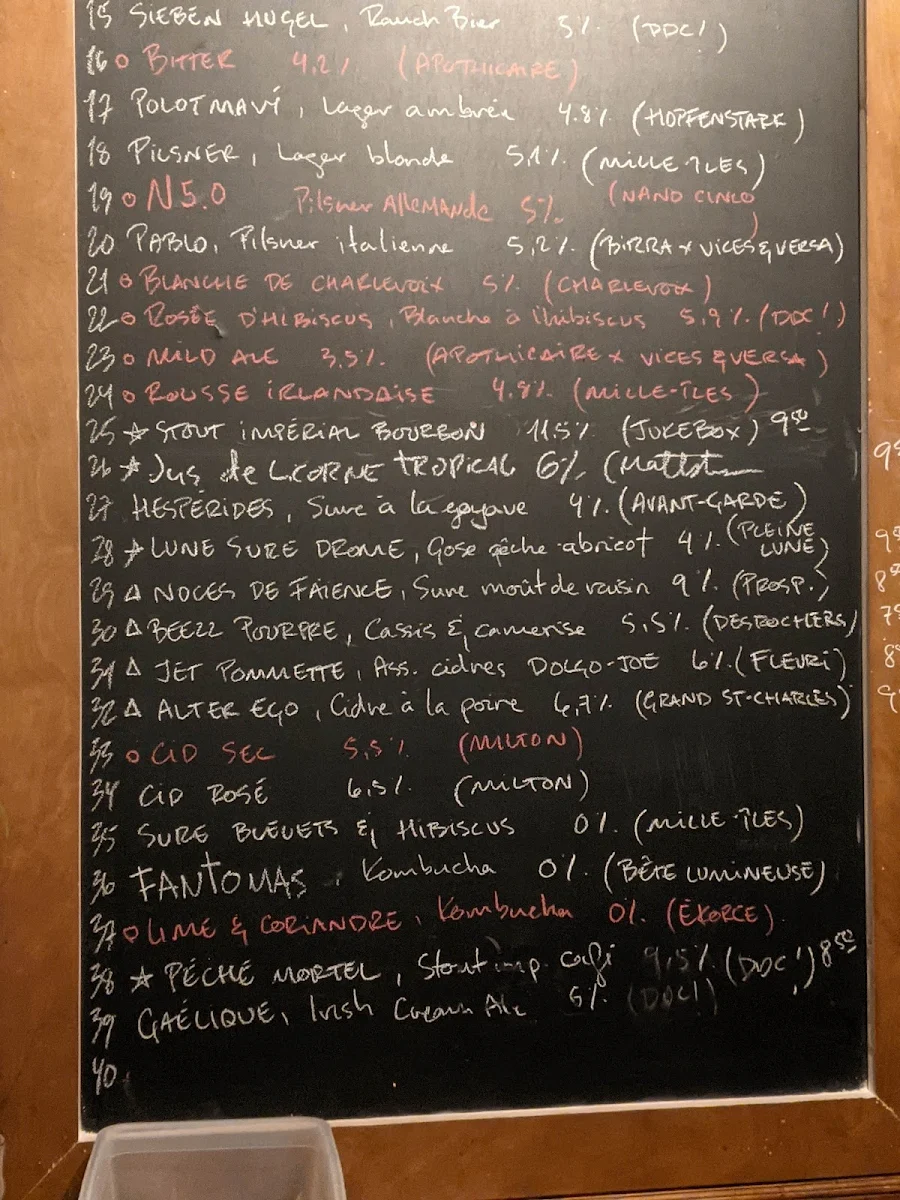 15 SIEBEN HUGEL, Rauch Bier 5% (DDC!)
16 o BITTER 4,2% (APOTHICAIRE)
17 POLOTMAVÝ, Lager ambrée 4.8% (HOPFENSTARK)
18 PILSNER, Lager blonde 5,1% (MILLE-ÎLES)
19 o N5.0 Pilsner Allemande 5% (NANO CINCO)
20 PABLO, Pilsner italienne 5,2% (BIRRA x VICES & VERSA)
21 o BLANCHE DE CHARLEVOIX 5% (CHARLEVOIX)
22 o ROSÉE D'HIBISCUS, Blanche à l'hibiscus 5,9% (DDC!)
23 o MILD ALE 3,5% (APOTHICAIRE x VICES & VERSA)
24 o ROUSSE IRLANDAISE 4.8% (MILLE-ÎLES)
25 ☆ STOUT IMPÉRIAL BOURBON 11.5% (JUKEBOX) 9⁵⁰
26 ☆ Jus de LICORNE TROPICAL 6%
27 HESPÉRIDES, Sure à la goyave 4% (AVANT-GARDE)
28 ☆ LUNE SURE DROME, Gose pêche-abricot 4% (PLEINE LUNE)
29 Δ NOCES DE FAÏENCE, Sure moût de raisin 9% (PROSP.)
30 Δ BEEZZ POURPRE, Cassis & camerise 5,5% (DESROCHERS)
31 Δ JET POMMETTE, Ass. cidres DOLGO-JOE 6% (FLEURI)
32 Δ ALTER EGO, Cidre à la poire 6,7% (GRAND ST-CHARLES)
33 o CID SEC 5,5% (MILTON)
34 CID ROSÉ 6,5% (MILTON)
35 SURE BLEUETS & HIBISCUS 0% (MILLE-ÎLES)
36 FANTOMAS, Kombucha 0% (BÊTE LUMINEUSE)
37 o LIME & CORIANDRE, Kombucha 0% (ÉKORCE)
38 ☆ PÉCHÉ MORTEL, Stout imp. café 9,5% (DDC!) 8⁵⁰
39 GAÉLIQUE, Irish Cream Ale 5% (DDC!)
40